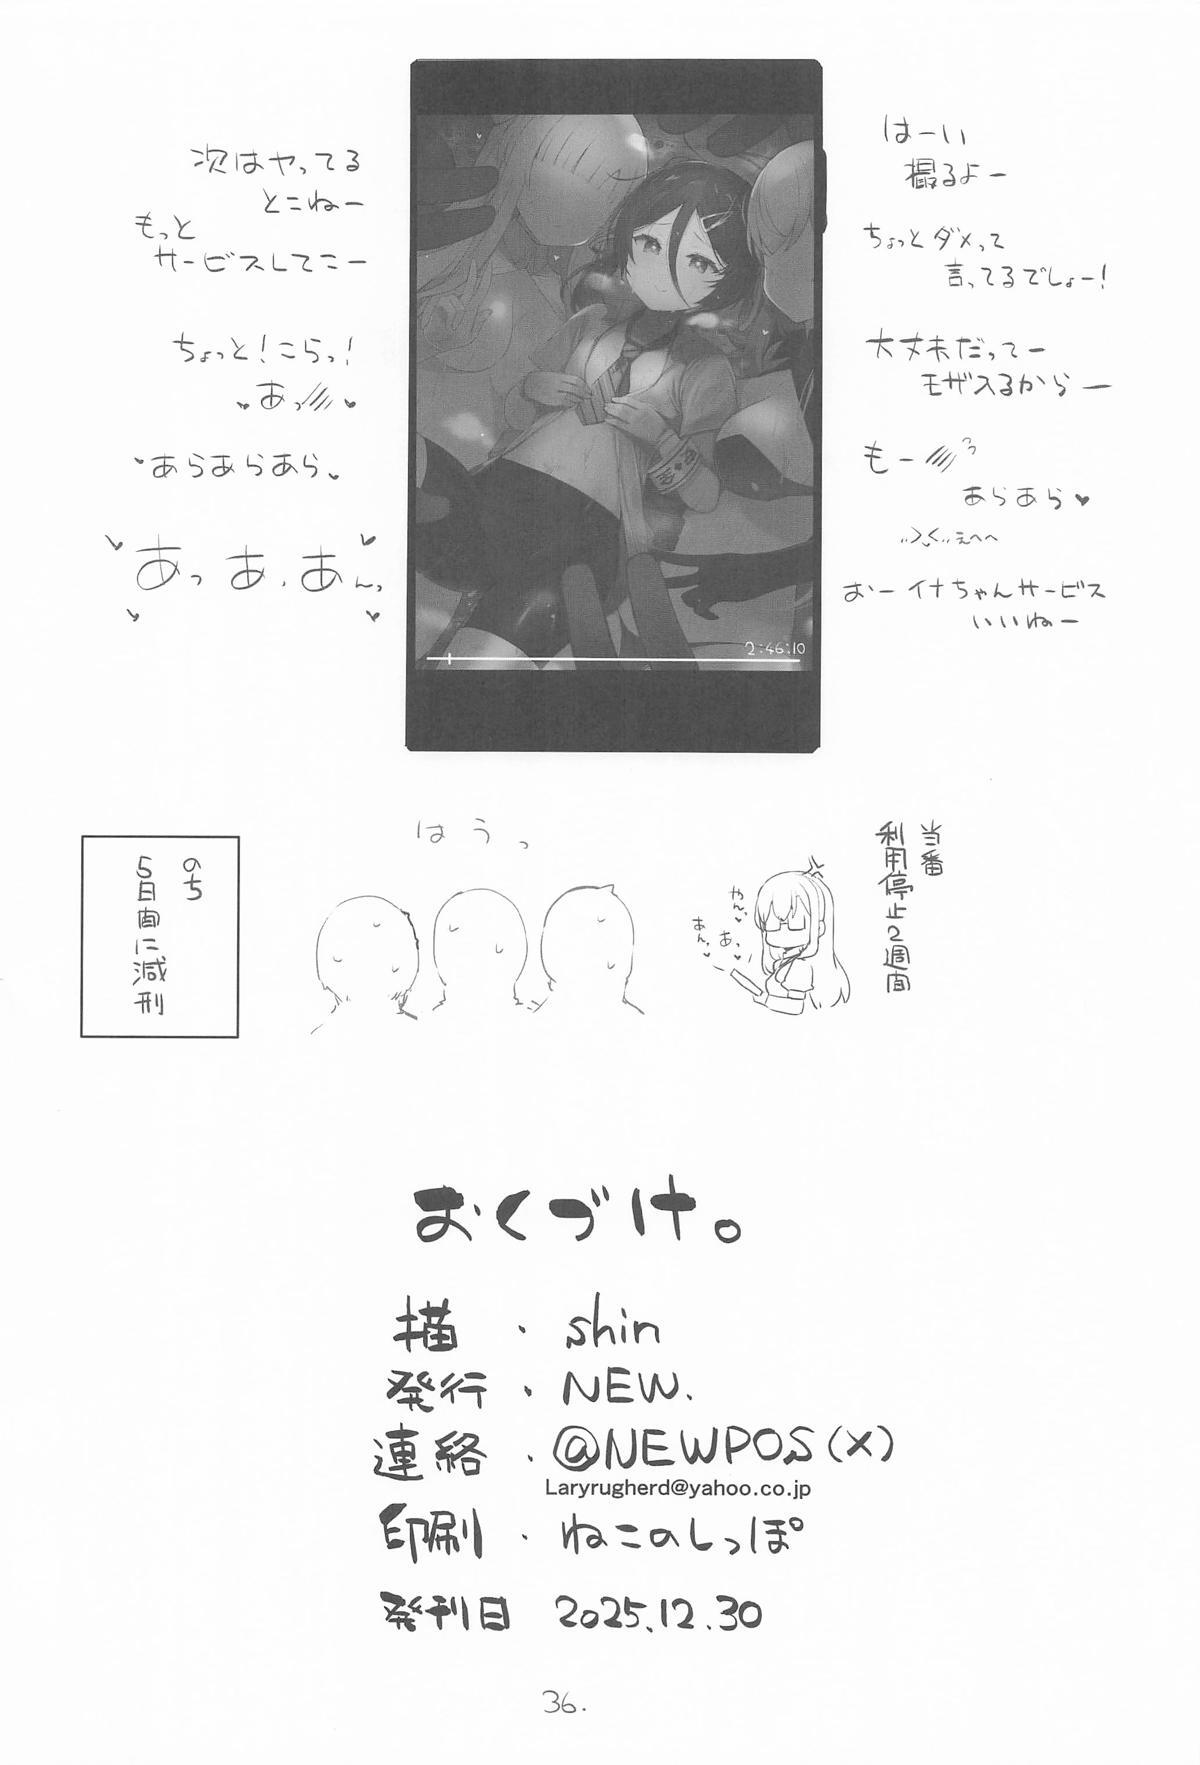 はーい
撮るよー
ちょっとダメって
言ってるでしょー!
大丈夫だってー
モザ入るからー
もー
あらあら♥
えへへ
おーイナちゃんサービス
いいねー
次はヤってる
とこねー
もっと
サービスしてこー
ちょっと!こらっ!
♥あっ♥
♥あらあらあら♥
あっあ、あんっ
2:46:10
当番
利用停止2週間
やんっ♥
あっ♥
あんっ♥
はうっ
のち
5日間に減刑
おくづけ。
描・shin
発行・NEW.
連絡・@NEWPOS(X)
Laryrugherd@yahoo.co.jp
印刷・ねこのしっぽ
発刊日 2025.12.30
36.